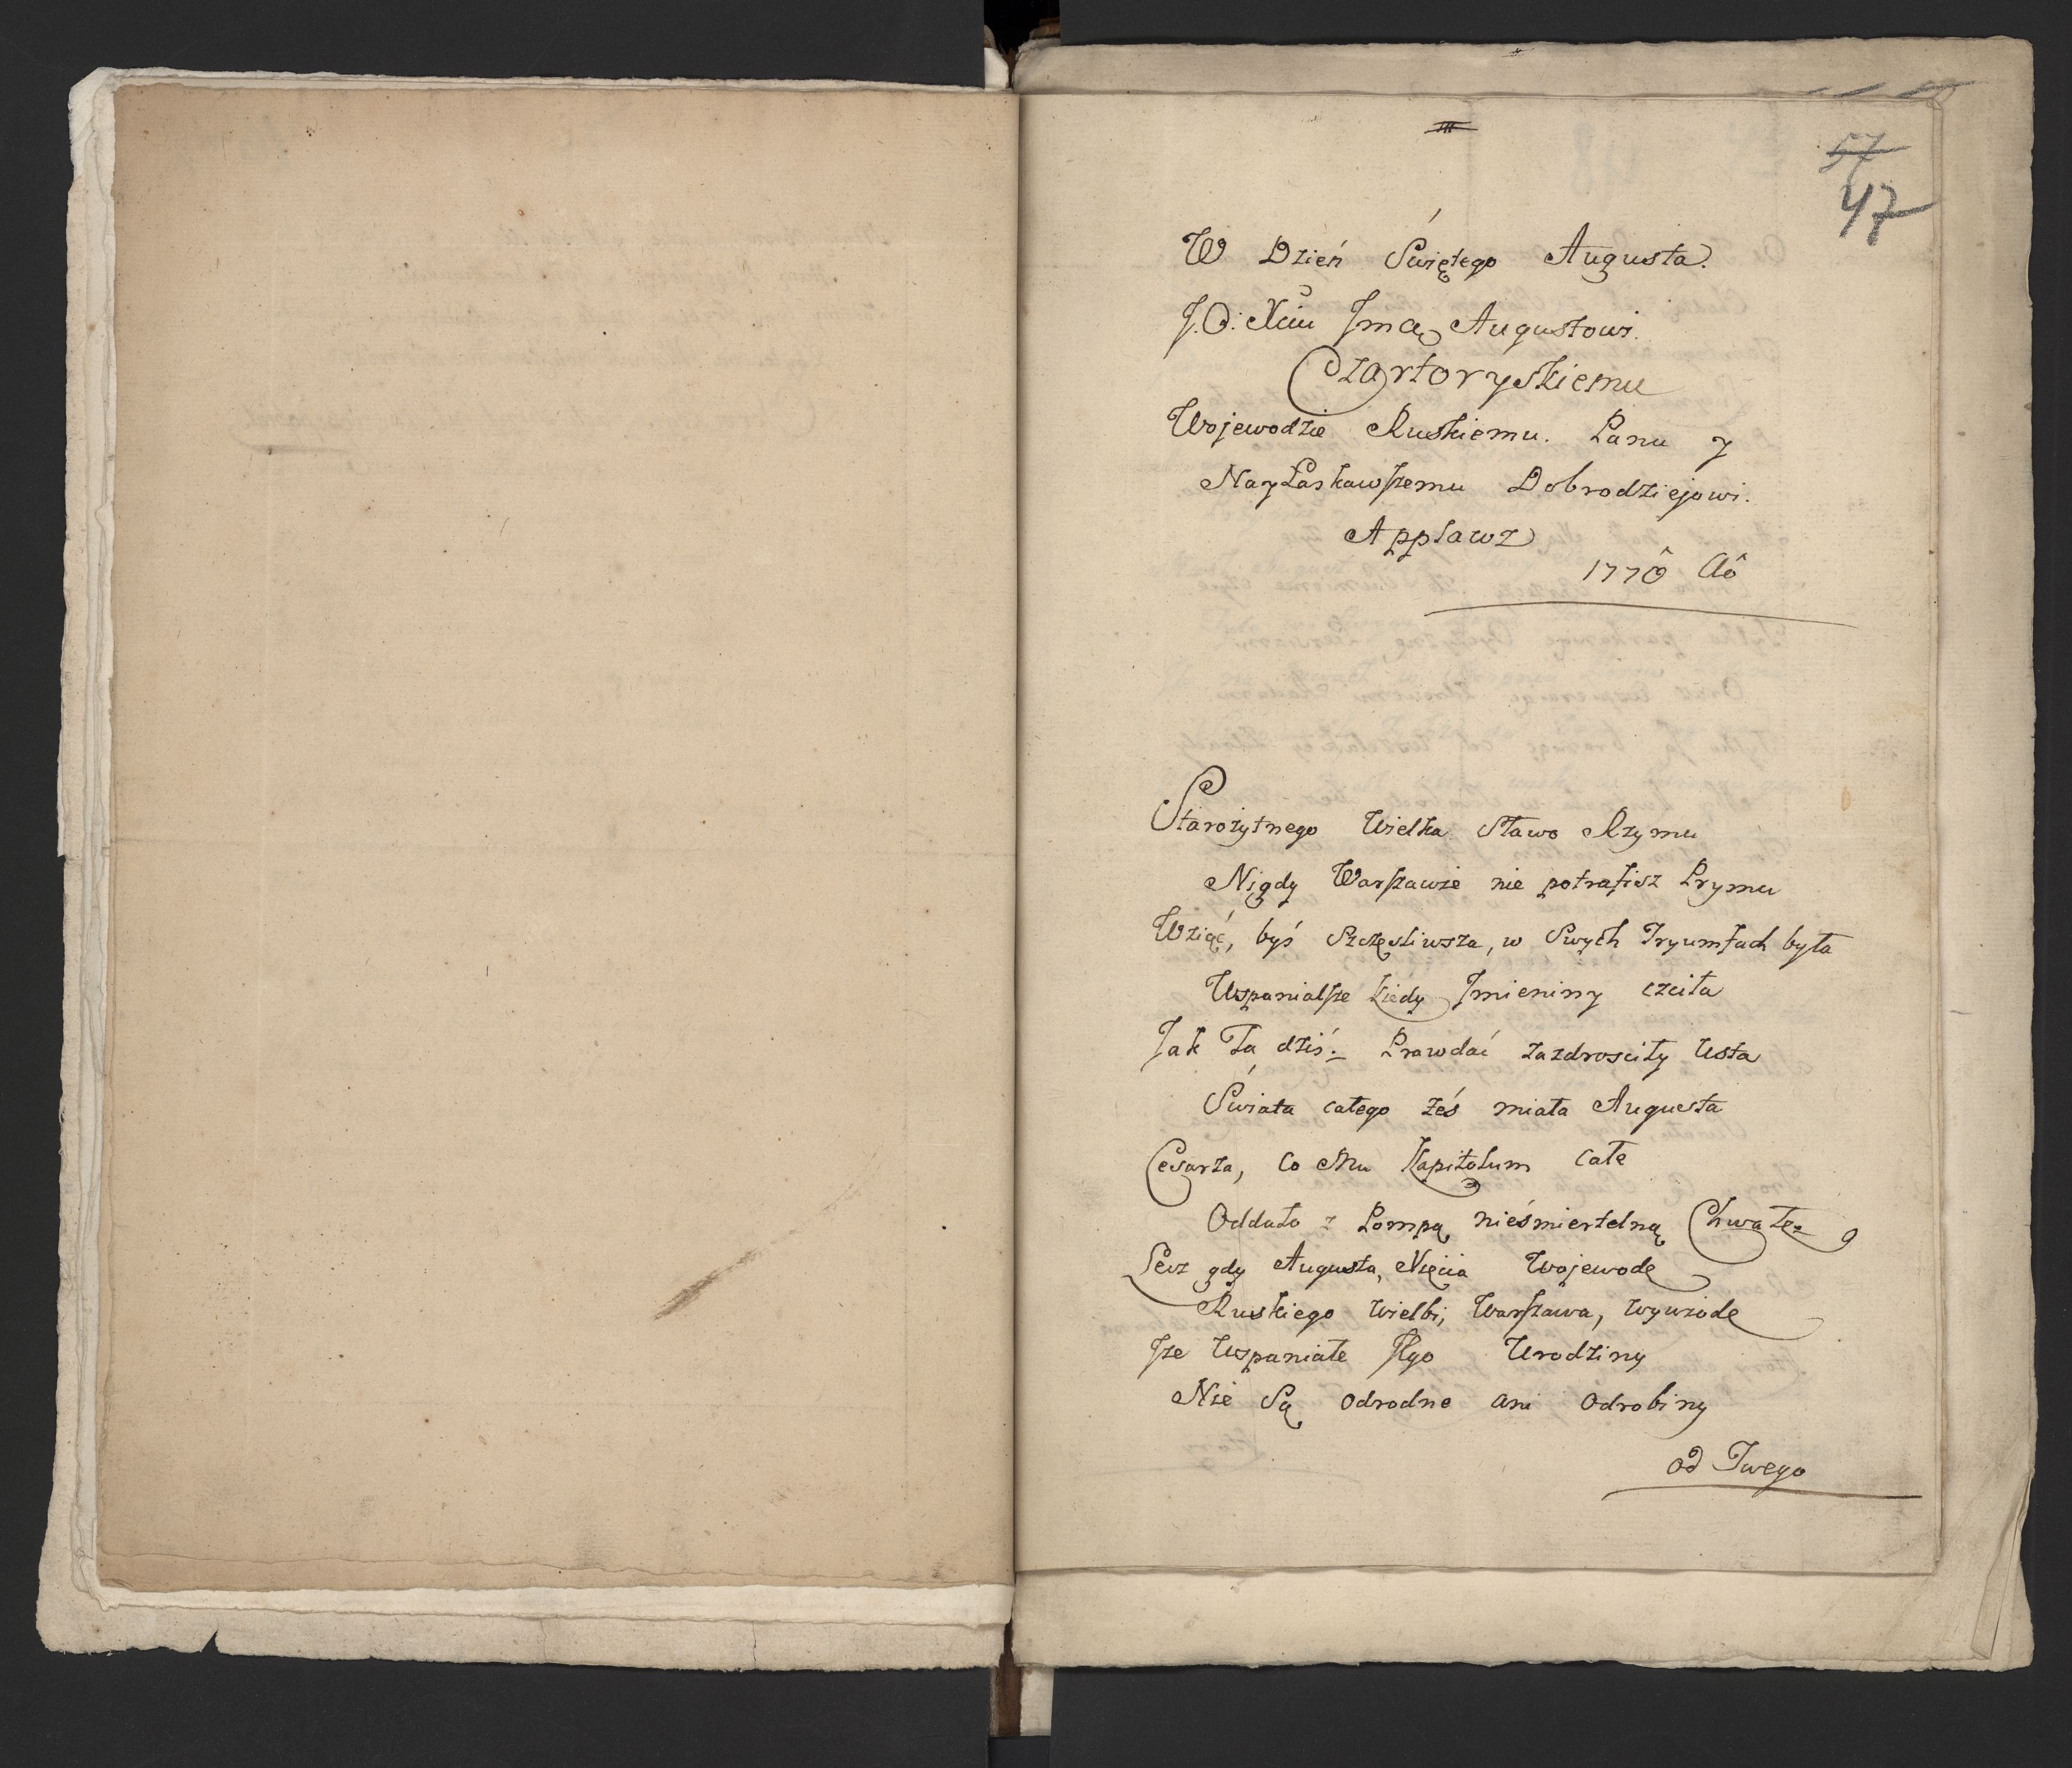 57
47
W Dzień Świętego Augusta.
J.O. Xciu Jmcą Augustowi.
Czartoryskiemu
Wojewodzie Ruskiemu. Panu y
NayŁaskawszemu Dobrodziejowi.
Applawz
1770 Aô
Starożytnego Wielka Sławo Rzymu
Nigdy Warszawie nie potrafisz Prymu
Wziąć, byś Szczęsliwsza, w Swych Tryumfach była
Wspanialsze kiedy Jmieniny czciła
Jak Ta dziś. Prawdać zazdrosciły Usta
Świata całego żeś miała Augusta
Cesarza, co Mu Kapitolum całe
Oddało z Pompą nieśmiertelną Chwałę
Lecz gdy Augusta, Xięcia Wojewodę
Ruskiego wielbi, Warszawa, wywiodę
Jże Wspaniałe Jego Urodziny
Nie Są odrodne ani odrobiny
od Twego